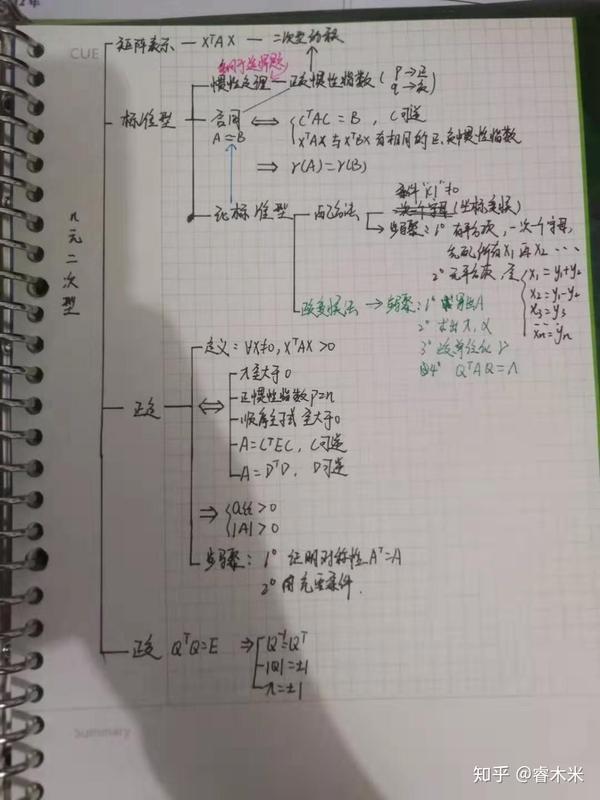 12年
CUE
矩阵表示 — XᵀAX — 二次型的秩
惯性定理 — 正负惯性指数 (p→正 q→负)
标准型
合同 ⟺ { CᵀAC = B, C可逆
A≃B
XᵀAX与XᵀBX有相同的正、负惯性指数
⇒ r(A)=r(B)
化标准型 — 配方法
条件
(坐标变换)
步骤: 1° 有平方项, 一次一个字母,
先配所有x₁再x₂ ···
2° 无平方项, 令 { x₁=y₁+y₂
x₂=y₁-y₂
x₃=y₃
···
xₙ=yₙ
正交变换法 → 步骤: 1° 写出A
2° 求出λ, α
3° 改单位化γ
4° QᵀAQ=Λ
n元二次型
正定
定义: ∀x≠0, XᵀAX>0
⟺ λ全大于0
正惯性指数p=n
顺序主子式全大于0
A=CᵀEC, C可逆
A=DᵀD, D可逆
⇒ { aᵢᵢ>0
|A|>0
步骤: 1° 证明对称性Aᵀ=A
2° 用充要条件.
正交 QᵀQ=E ⇒ Q⁻¹=Qᵀ
|Q|=±1
λ=±1
Summary
知乎 @睿木米